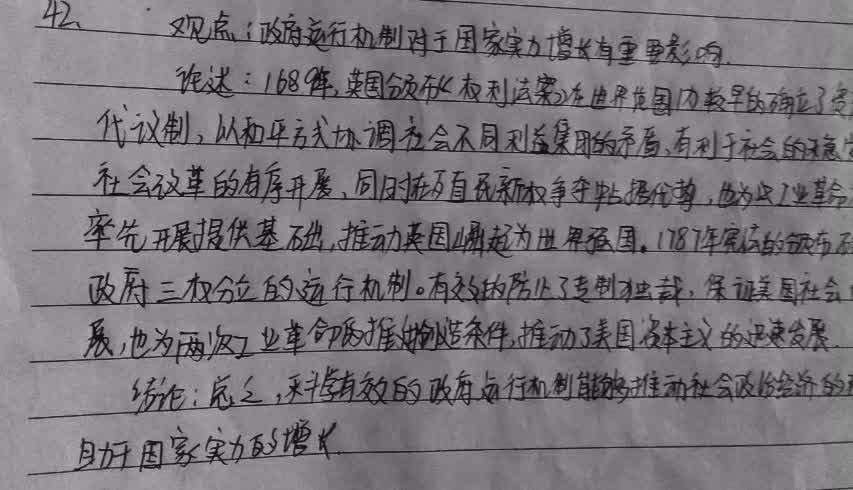 42、 观点:政府运行机制对于国家实力增长有重要影响.
论述:1689年,英国颁布《权利法案》在世界范围内较早的确立了
代议制,以和平方式协调社会不同利益集团的矛盾,有利于社会的稳
社会改革的有序开展,同时在与西自民新权争夺中占据优势,也为工业革命
率先开展提供基础,推动英国崛起为世界强国。1787年宪法的颁布
政府三权分立的运行机制。有效的防止了专制独裁,保证美国社会
展,也为两次工业革命的推创造条件,推动了美国资本主义的迅速发展.
结论:总之,科学有效的政府运行机制能够推动社会政治经济的
助于国家实力的增长.